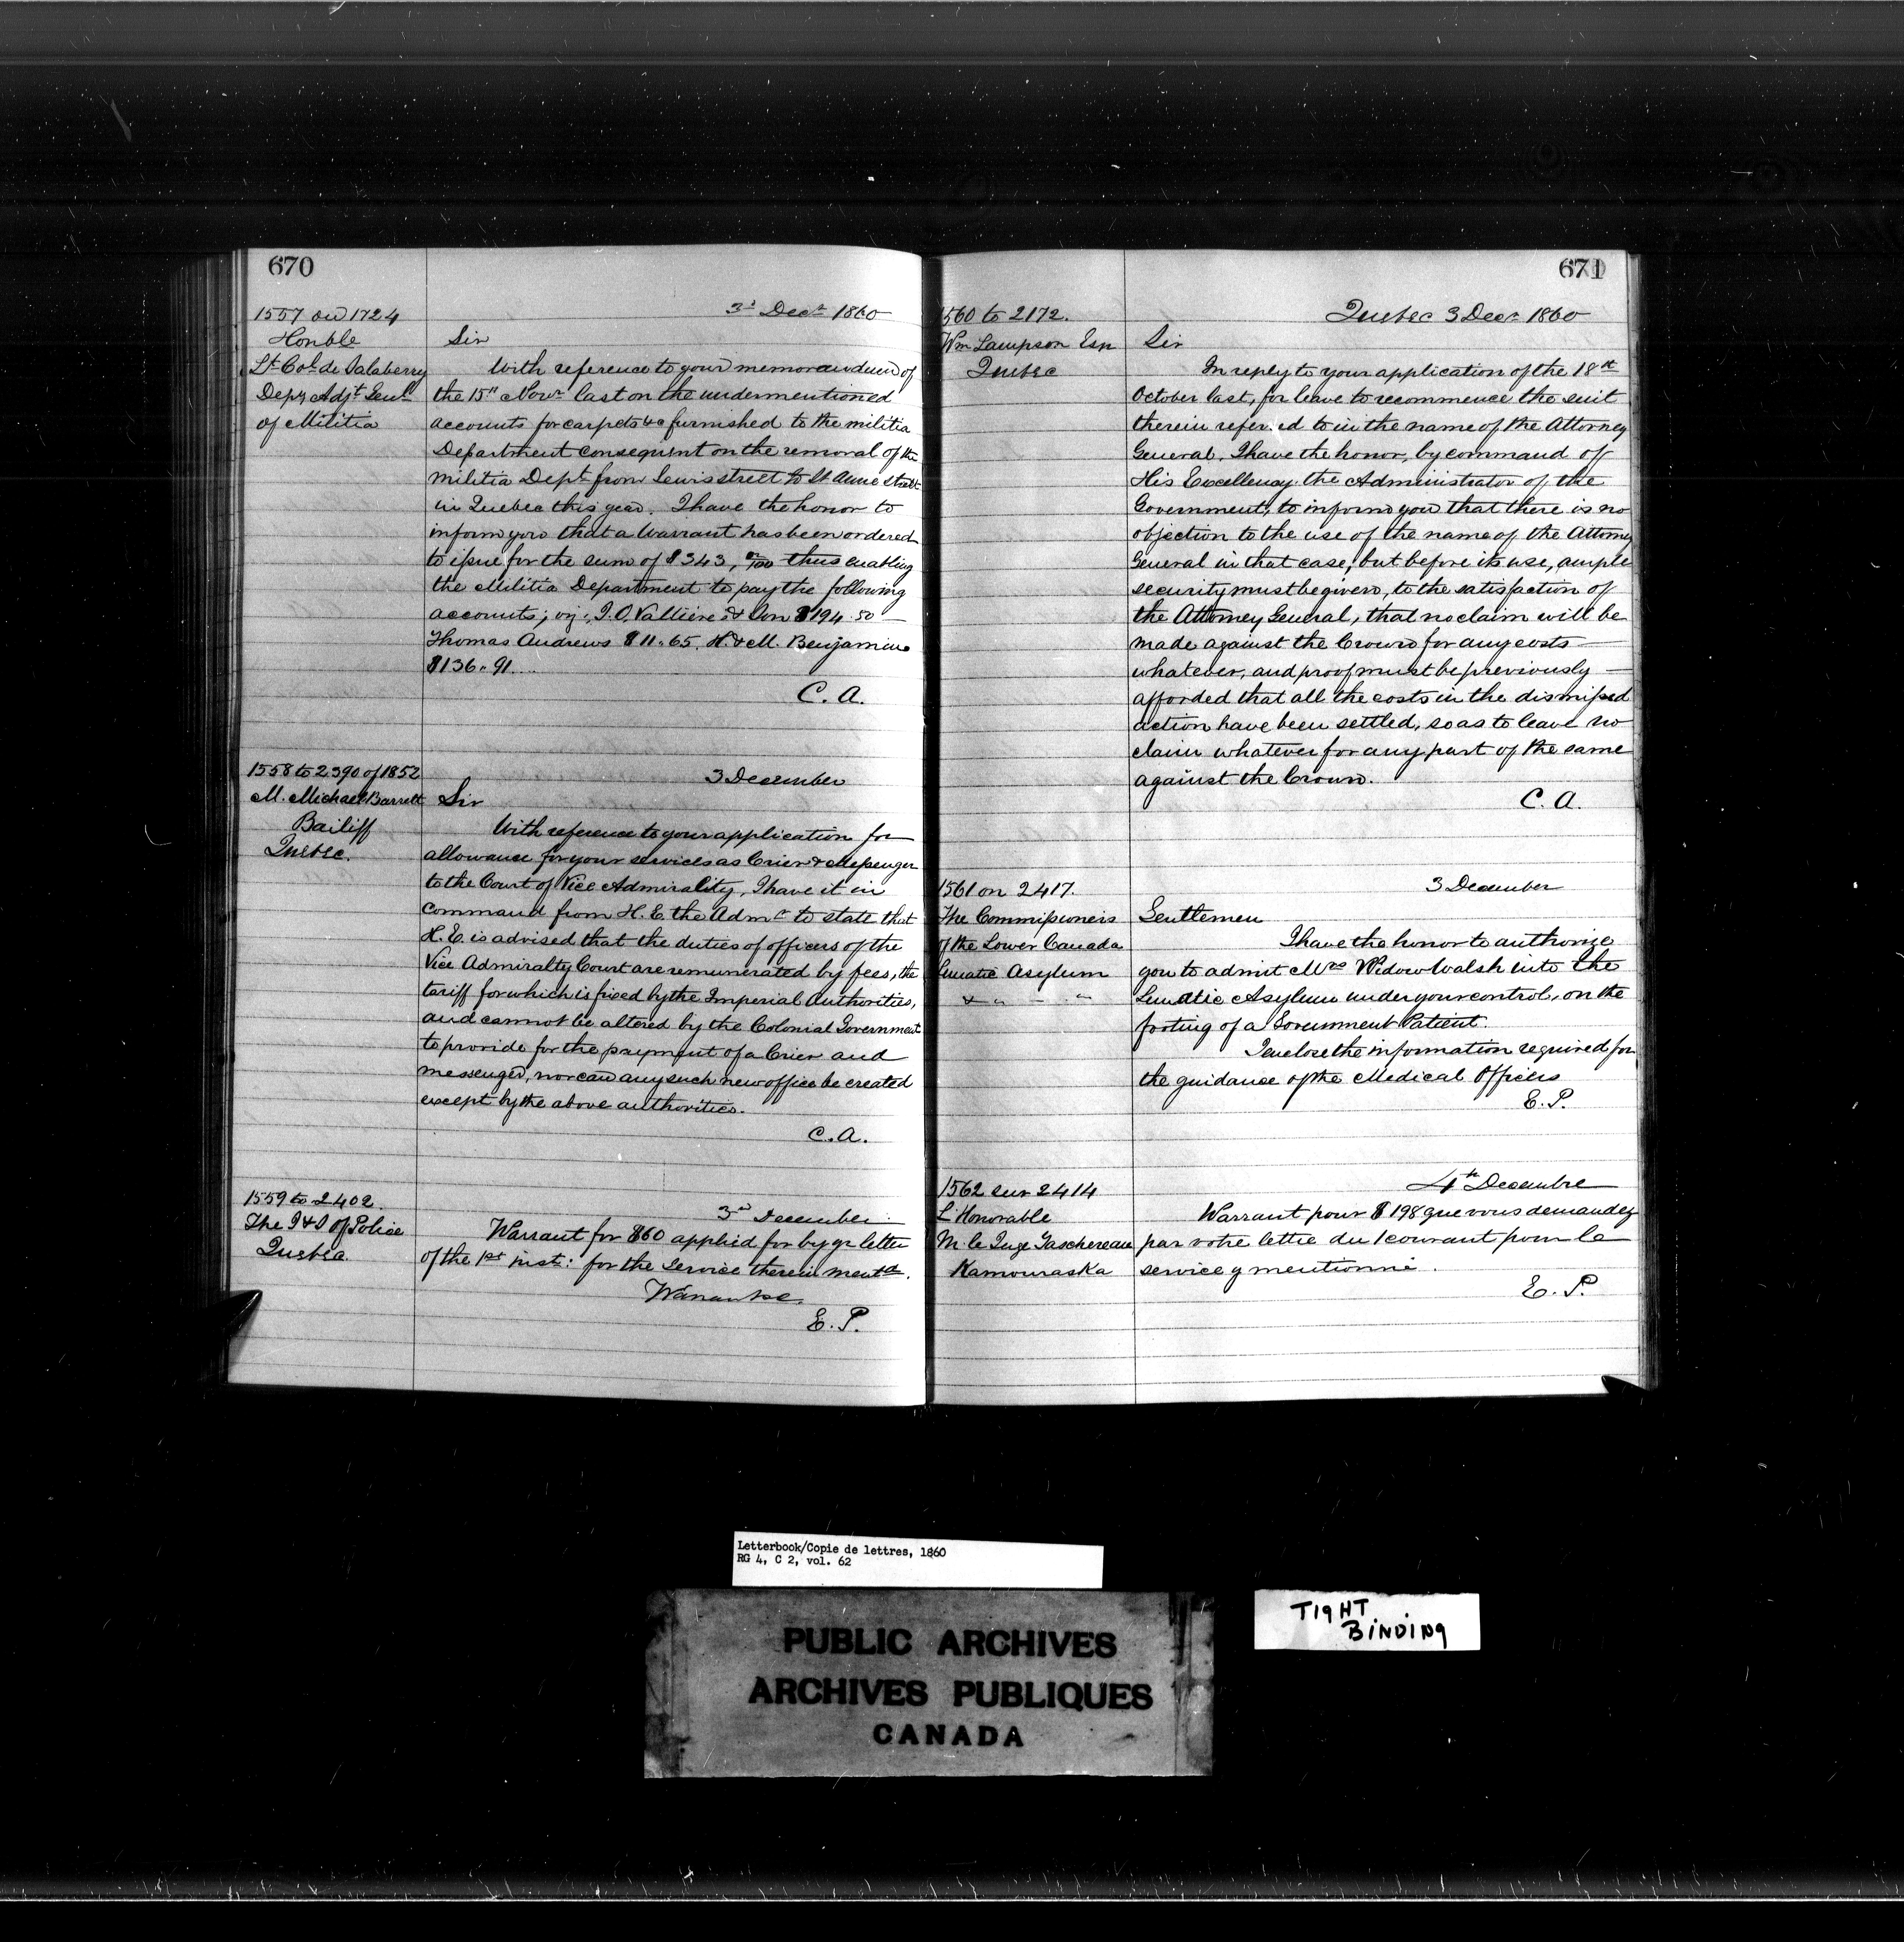 670
1557 on 1724
Honble
Lt. Col. de Salaberry
Depy Adjt Genl
of Militia
3d Decr 1860
Sir
With reference to your memorandum of
the 15th Novr last on the undermentioned
accounts for carpets &c furnished to the militia
Department consequent on the removal of the
militia Dept from Lewis street to St Anne street
in Quebec this year. I have the honor to
inform you that a Warrant has been ordered
to issue for the sum of $343, /100 thus enabling
the Militia Department to pay the following
accounts; viz; J. O. Valliere & Son $194.50
Thomas Andrews $11.65. H. & M. Benjamin
$136.91
C. A.
1558 to 2390 of 1852
M. Michael Barrett
Bailiff
Quebec.
3 December
Sir
With reference to your application for
allowance for your services as Crier & Messenger
to the Court of Vice Admirality, I have it in
command from H. E. the Admr to state that
H. E. is advised that the duties of officers of the
Vice Admiralty Court are remunerated by fees, the
tariff for which is fixed by the Imperial Authorities,
and cannot be altered by the Colonial Government
to provide for the payment of a Crier and
messenger, nor can any such new office be created
except by the above authorities.
C. A.
1559 to 2402.
The I & S of Police
Quebec
3rd December
Warrant for $60 applied for by yr letter
of the 1st inst: for the service therein mentd.
E. P.
671
1560 to 2172.
Wm Lampson Esq
Quebec
Quebec 3 Decr 1860
Sir
In reply to your application of the 18th
October last, for leave to recommence the suit
therein referred to in the name of the Attorney
General, I have the honor, by command of
His Excellency the Administrator of the
Government, to inform you that there is no
objection to the use of the name of the Attorney
General in that case, but before its use, ample
security must be given, to the satisfaction of
the Attorney General, that no claim will be
made against the Crown for any costs
whatever, and proof must be previously
afforded that all the costs in the dismissed
action have been settled, so as to leave no
claim whatever for any part of the same
against the Crown.
C. A.
1561 on 2417.
The Commissioners
of the Lower Canada
Lunatic Asylum
& " - "
3 December
Gentlemen
I have the honor to authorize
you to admit Mrs Widow Walsh into the
Lunatic Asylum under your control, on the
footing of a Government Patient.
I enclose the information required for
the guidance of the Medical Officers
E. P.
1562 sur 2414
L'Honorable
M. le Juge Taschereau
Kamouraska
4th Decembre
Warrant pour $198 que vous demandez
par votre lettre du 1 courant pour le
service y mentionné.
E. P.
Letterbook/Copie de lettres, 1860
RG 4, C 2, vol. 62
PUBLIC ARCHIVES
ARCHIVES PUBLIQUES
CANADA
TIGHT
BINDING